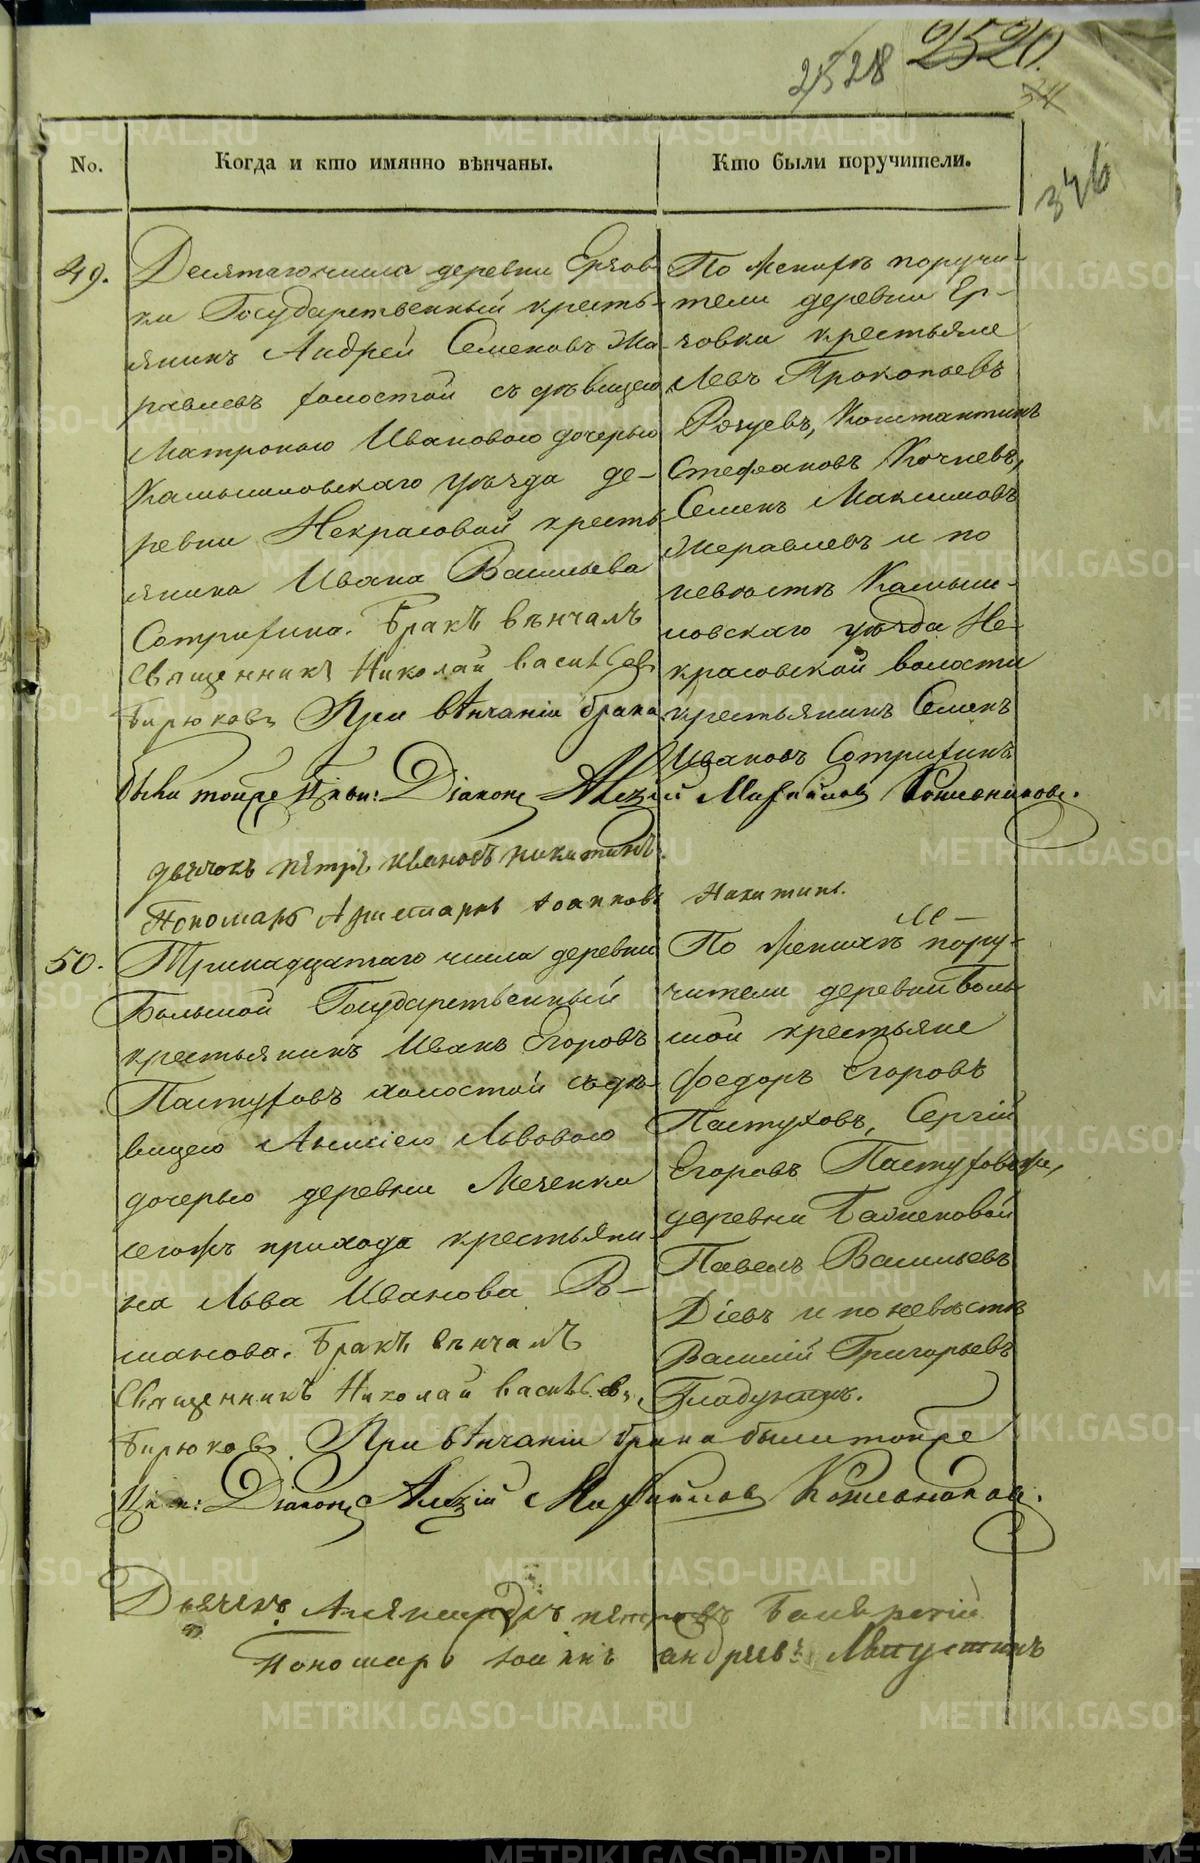 2528 2520.
34
346
No.
Когда и кто имянно вѣнчаны.
Кто были поручители.
49.
Десятаго числа деревни Ерзов-
ки Государственный кресть-
янинъ Андрей Семеновъ Жа-
равлевъ холостой съ дѣвицею
Матроною Ивановою дочерью
Камышловскаго уѣзда де-
ревни Некрасовой кресть-
янина Ивана Васильева
Сотрихина. Бракъ вѣнчалъ
Священникъ Николай Васильевъ
Бирюковъ При вѣнчаніи брака
были тойже Цркви: Діаконъ Алексій Михайловъ Кожевниковъ.
дьячокъ петръ ивановъ никитинъ.
Пономарь Аристархъ Іоанновъ Никитинъ.
По женихѣ поручи-
тели деревни Ер-
зовки крестьяне
Левъ Прокопьевъ
Константинъ
Стефановъ Кочневъ,
Семенъ Максимовъ
Жеравлевъ и по
невѣстѣ Камыш-
ловскаго уѣзда Не-
красовской волости
крестьянинъ Семенъ
Ивановъ Сотрихинъ
50.
Тринадцатаго числа деревни
Большой Государственный
крестьянинъ Иванъ Егоровъ
Пастуховъ холостой съ дѣ-
вицею Анисіею Львовою
дочерью деревни Меченки
сегожъ прихода крестьяни-
на Льва Иванова Ро-
манова. Бракъ вѣнчалъ
Священникъ Николай Васильевъ
Бирюковъ. При вѣнчаніи брака были тойже
Цркви: Діаконъ Алексій Михайловъ Кожевниковъ.
Дьячекъ Александръ петровъ
Пономарь Іоаннъ андреевъ
По женихѣ пору-
чители деревни Боль-
шой крестьяне
Федоръ Егоровъ
Пастуховъ, Сергій
Егоровъ Пастуховъ,
деревни
Павелъ Васильевъ
Діевъ и по невѣстѣ
Василій Григорьевъ
METRIKI.GASO-URAL.RU